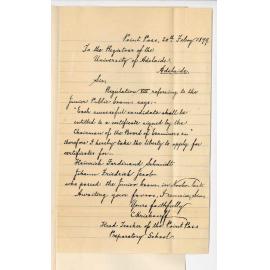 Point Pass, 20th Febry 1899
To the Registrar of the
University of Adelaide
Adelaide.
Sir,
Regulation VIII referring to the
Junior Public Exams says:-
"Each successful candidate shall be
entitled to a certificate signed by the
Chairman of the Board of Examiners &c"
therefore I hereby take the liberty to apply for
certificates for:
Heinrich Ferdinand Schmidt
Johann Friedrich Jacob
who passed the Junior Exam. in
Awaiting your favor, I remain, Sir,
Yours faithfully
Head Teacher of the Point Pass
Preparatory School.